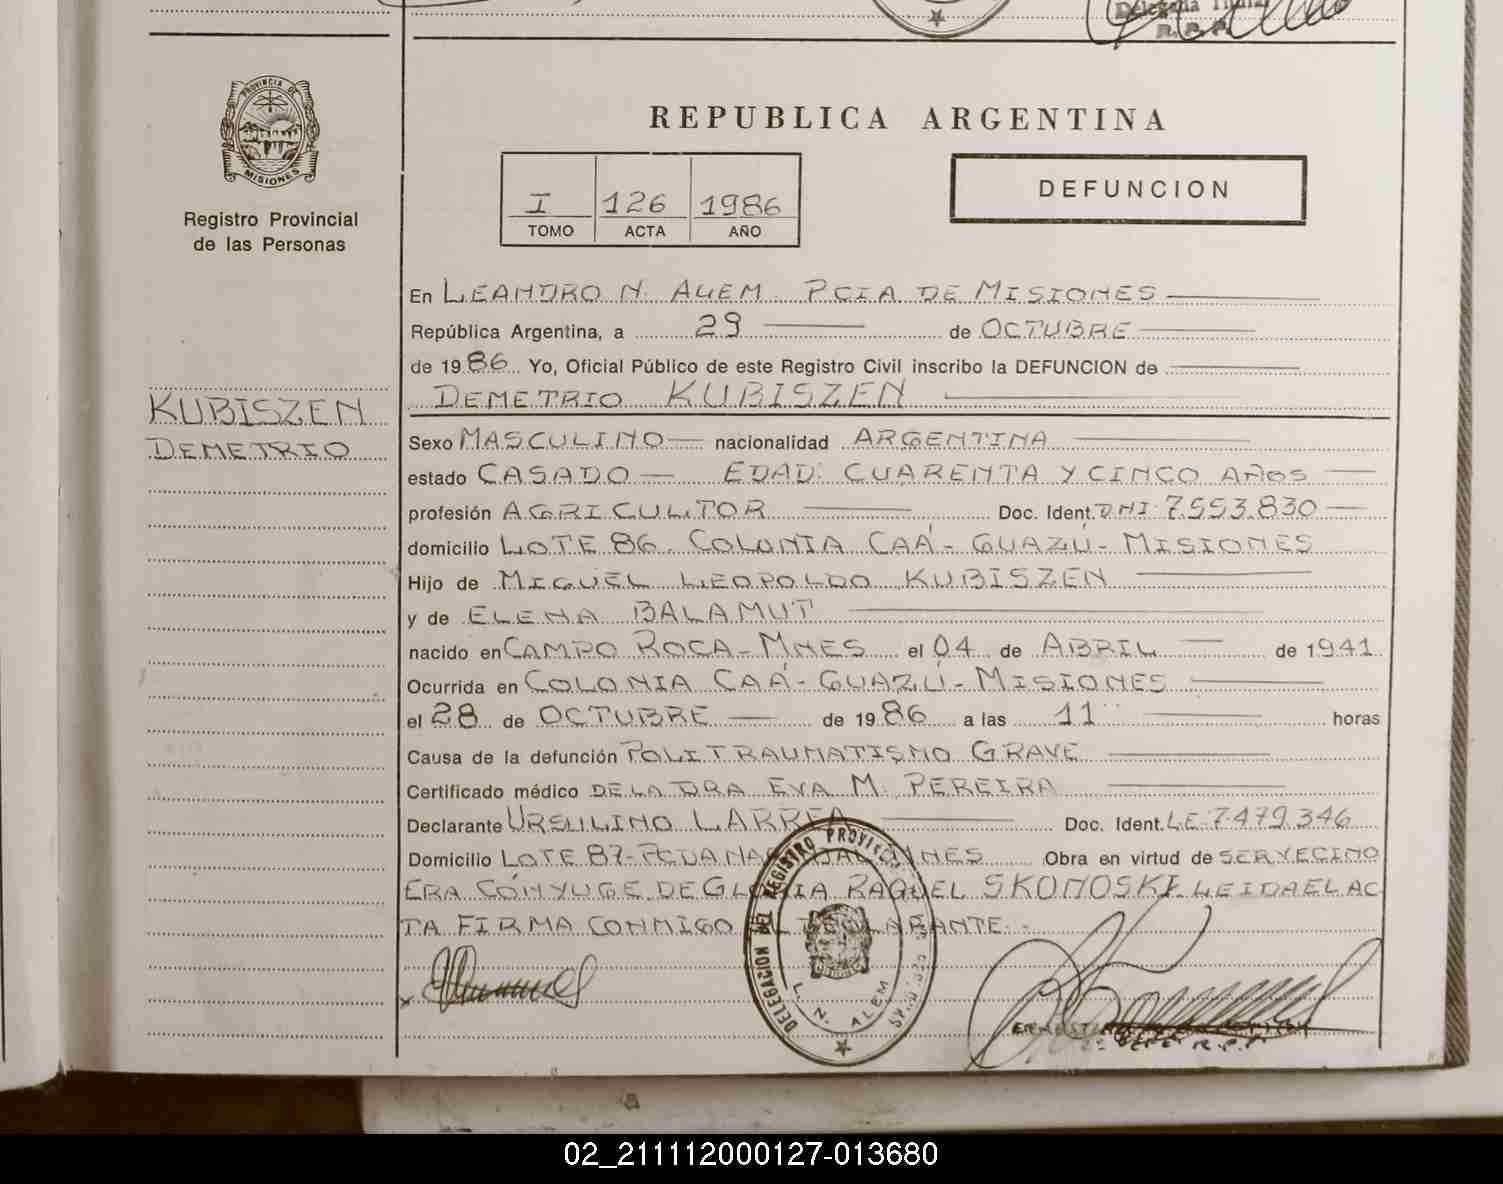 PROVINCIA DE
MISIONES
Registro Provincial
de las Personas
KUBISZEN
DEMETRIO
REPUBLICA ARGENTINA
I 126 1986
TOMO ACTA AÑO
DEFUNCION
En LEANDRO N. ALEM PCIA DE MISIONES
República Argentina, a 29 de OCTUBRE
de 1986 Yo, Oficial Público de este Registro Civil inscribo la DEFUNCION de
DEMETRIO KUBISZEN
Sexo MASCULINO nacionalidad ARGENTINA
estado CASADO EDAD: CUARENTA Y CINCO AÑOS
profesión AGRICULTOR Doc. Ident. DNI 7.553.830
domicilio LOTE 86. COLONIA CAÁ-GUAZÚ-MISIONES
Hijo de MIGUEL LEOPOLDO KUBISZEN
y de ELENA BALAMUT
nacido en CAMPO ROCA-MNES el 04 de ABRIL de 1941
Ocurrida en COLONIA CAÁ-GUAZÚ-MISIONES
el 28 de OCTUBRE de 1986 a las 11 horas
Causa de la defunción POLITRAUMATISMO GRAVE
Certificado médico DE LA DRA EVA M. PEREIRA
Declarante URSULINO LARREA Doc. Ident. LE 7.479.346
Domicilio LOTE 87- MNES Obra en virtud de SER VECINO
ERA CÓNYUGE DE GLORIA RAQUEL SKONOSKI. LEIDA EL AC
TA FIRMA CONMIGO EL DECLARANTE.-
DELEGACION DEL REGISTRO PROVINCIAL
L. N. ALEM
02_211112000127-013680